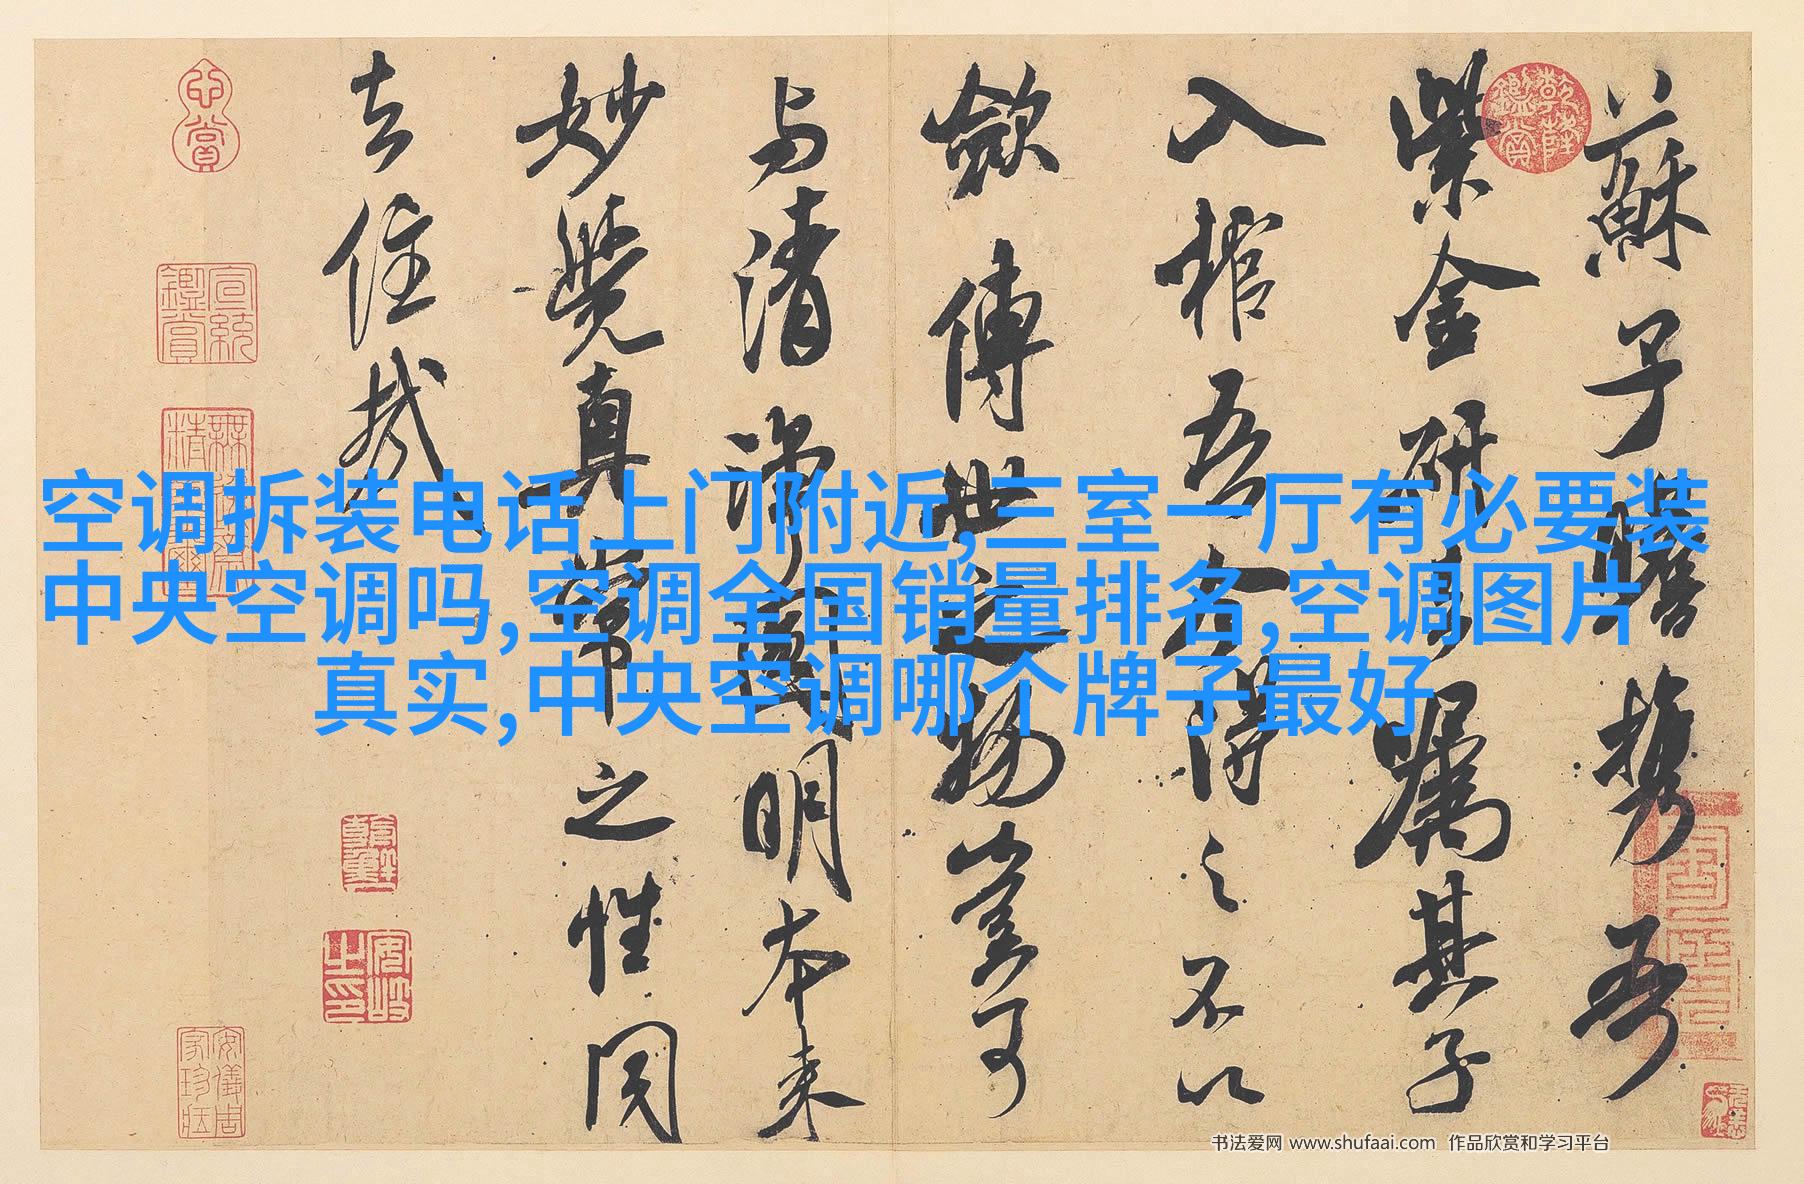 空调拆装电话上门附近,三室一厅有必要装
中央空调吗,空调全国销量排名,空调图片
真实,中央空调哪个牌子最好
蘇子瞻携吾
紫金研去嘱其子
入棺吾今得之不以
歛傳世之物豈可
与清淨圓明本来
妙覺真常之性同
去住哉
乾隆鑑賞
心賞
宣統鑑賞
书法爱网 www.shufaai.com 作品欣赏和学习平台